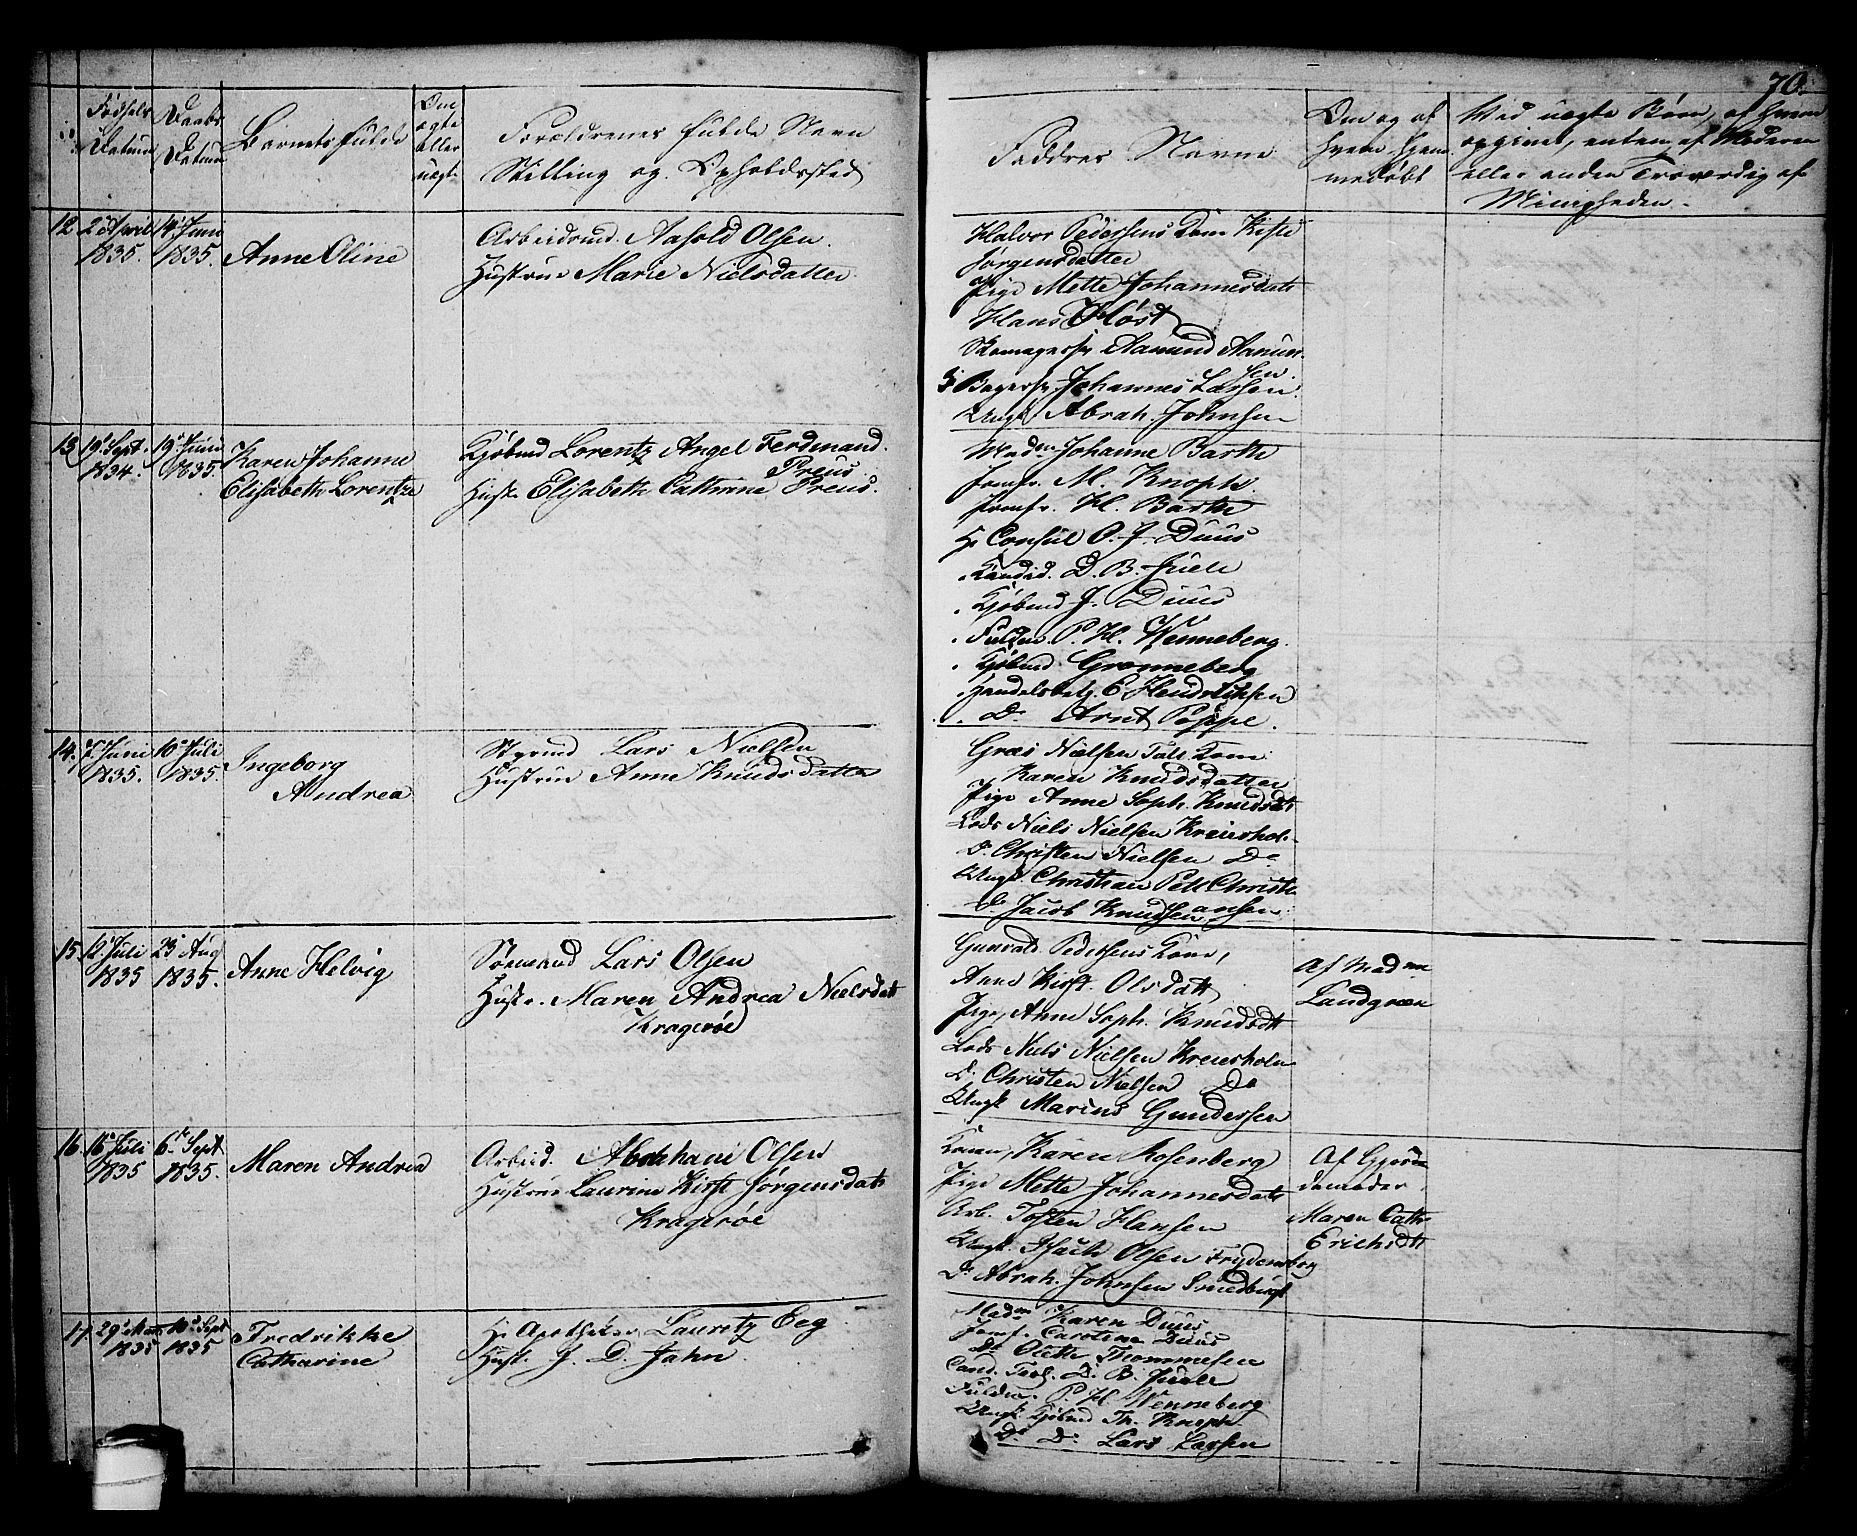 70.
Fødsels
Datum
Daabs
Datum
Barnets fulde
Om
ægte
eller
uægte
Forældrenes fulde Navn
Stilling og Opholdssted
Faddres Navne
Om og af
hvem hjem
medøbt
Ved uægte Børn, af hvem
opgivet, enten af Moderen
eller anden Troværdig af
Menigheden.
12 2 April 14 Juni
1835. 1835. Anne Oline
Arbeidsmd. Aasold Olsen.
Hustrue Marie Nielsdatter
Halvor Pedersens Kone Kirsti
Jørgensdatter
Pige Mette Johannesdatt
Hans Høst
Skomagersv Aamund Aamun
sen.
Bagersv. Johannes Larsen
Ungk. Abrah. Johnsen
13 19 Sept. 19 Juni
1834. 1835. Karen Johanne
Elisabeth Lorentze
Kjøbmd Lorentz Angel Ferdinand
Preus
Hustr. Elisabeth Cathrine Preus.
Madm Johanne Barth
Jomfr. M. Knoph.
Jomfr. H. Barth
Hr Consul P. J. Duus
Kandid. D. B. Juell
Kjøbmd J. Duus
Fuldm. P. H. Wenneberg.
Kjøbmd Grønneberg
Handelsbetj. C Hendriksen
Do Arnt Poppe.
14. 7 Juni 10 Juli
1835. 1835. Ingeborg
Andrea
Styrmd Lars Nielsen
Hustrue Anne Knudsdatter
Græs Nielsen Tall. Kone
Karen Knudsdatter
Pige Anne Soph. Knudsdt
Lods Niels Nielsen Kreiershol.
Do Christen Nielsen Do
Ungk. Christian Pett Christi
ansen.
Do Jacob Knudsen
15. 12 Juli 23 Aug
1835 1835. Anne Helvig
Sømand Lars Olsen
Hustr. Maren Andrea Nielsdatt
Kragerøe
Gunvald Pedersens Kone,
Anne Kirst. Olsdatt
Pige, Anne Soph. Knudsdt
Lods Niels Nielsen Kreiersholm
Do Christen Nielsen Do
Ungk Marius Gundersen
Af Madme
Landgreen
16. 16 Juli 6 Sept
1835 1835. Maren Andrea
Arbeid. Abraham Olsen
Hustrue Laurine Kirst Jørgensdatt
Kragerøe
Konen, Karen Rosenberg
Pige Mette Johannesdatt
Arb. Tosten Hansen
Ungk. Isach Olsen Frydensborg
Do Abrah. Johnsen Smedbugt
Af Gjorde
demoder
Maren Cath.
Erichsdt
17. 29 Marts 10 Sept
1835 1835 Fredrikke
Catharine
Hr Apotheker Lauritz Eeg
Hust. J. D. Jahn
Madm Karen Duus
Jomf. Caroline Duus
Do Oleth. Thommesen
Cand. Teol. D. B. Juell
Fuldm. P. H. Wenneberg
Ungk Kjøbmd Th. Knoph
Do Do Lars Larsen